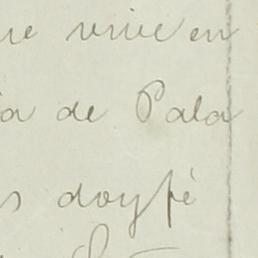 que vive en
ia de Pala
s doy fé